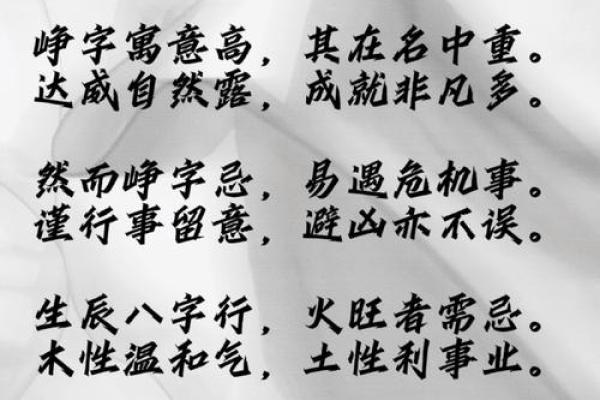 峥字寓意高，其在名中重。
达威自然露，成就非凡多。
然而峥字忌，易遇危机事。
谨行事留意，避凶亦不误。
生辰八字行，火旺者需忌。
木性温和气，土性利事业。